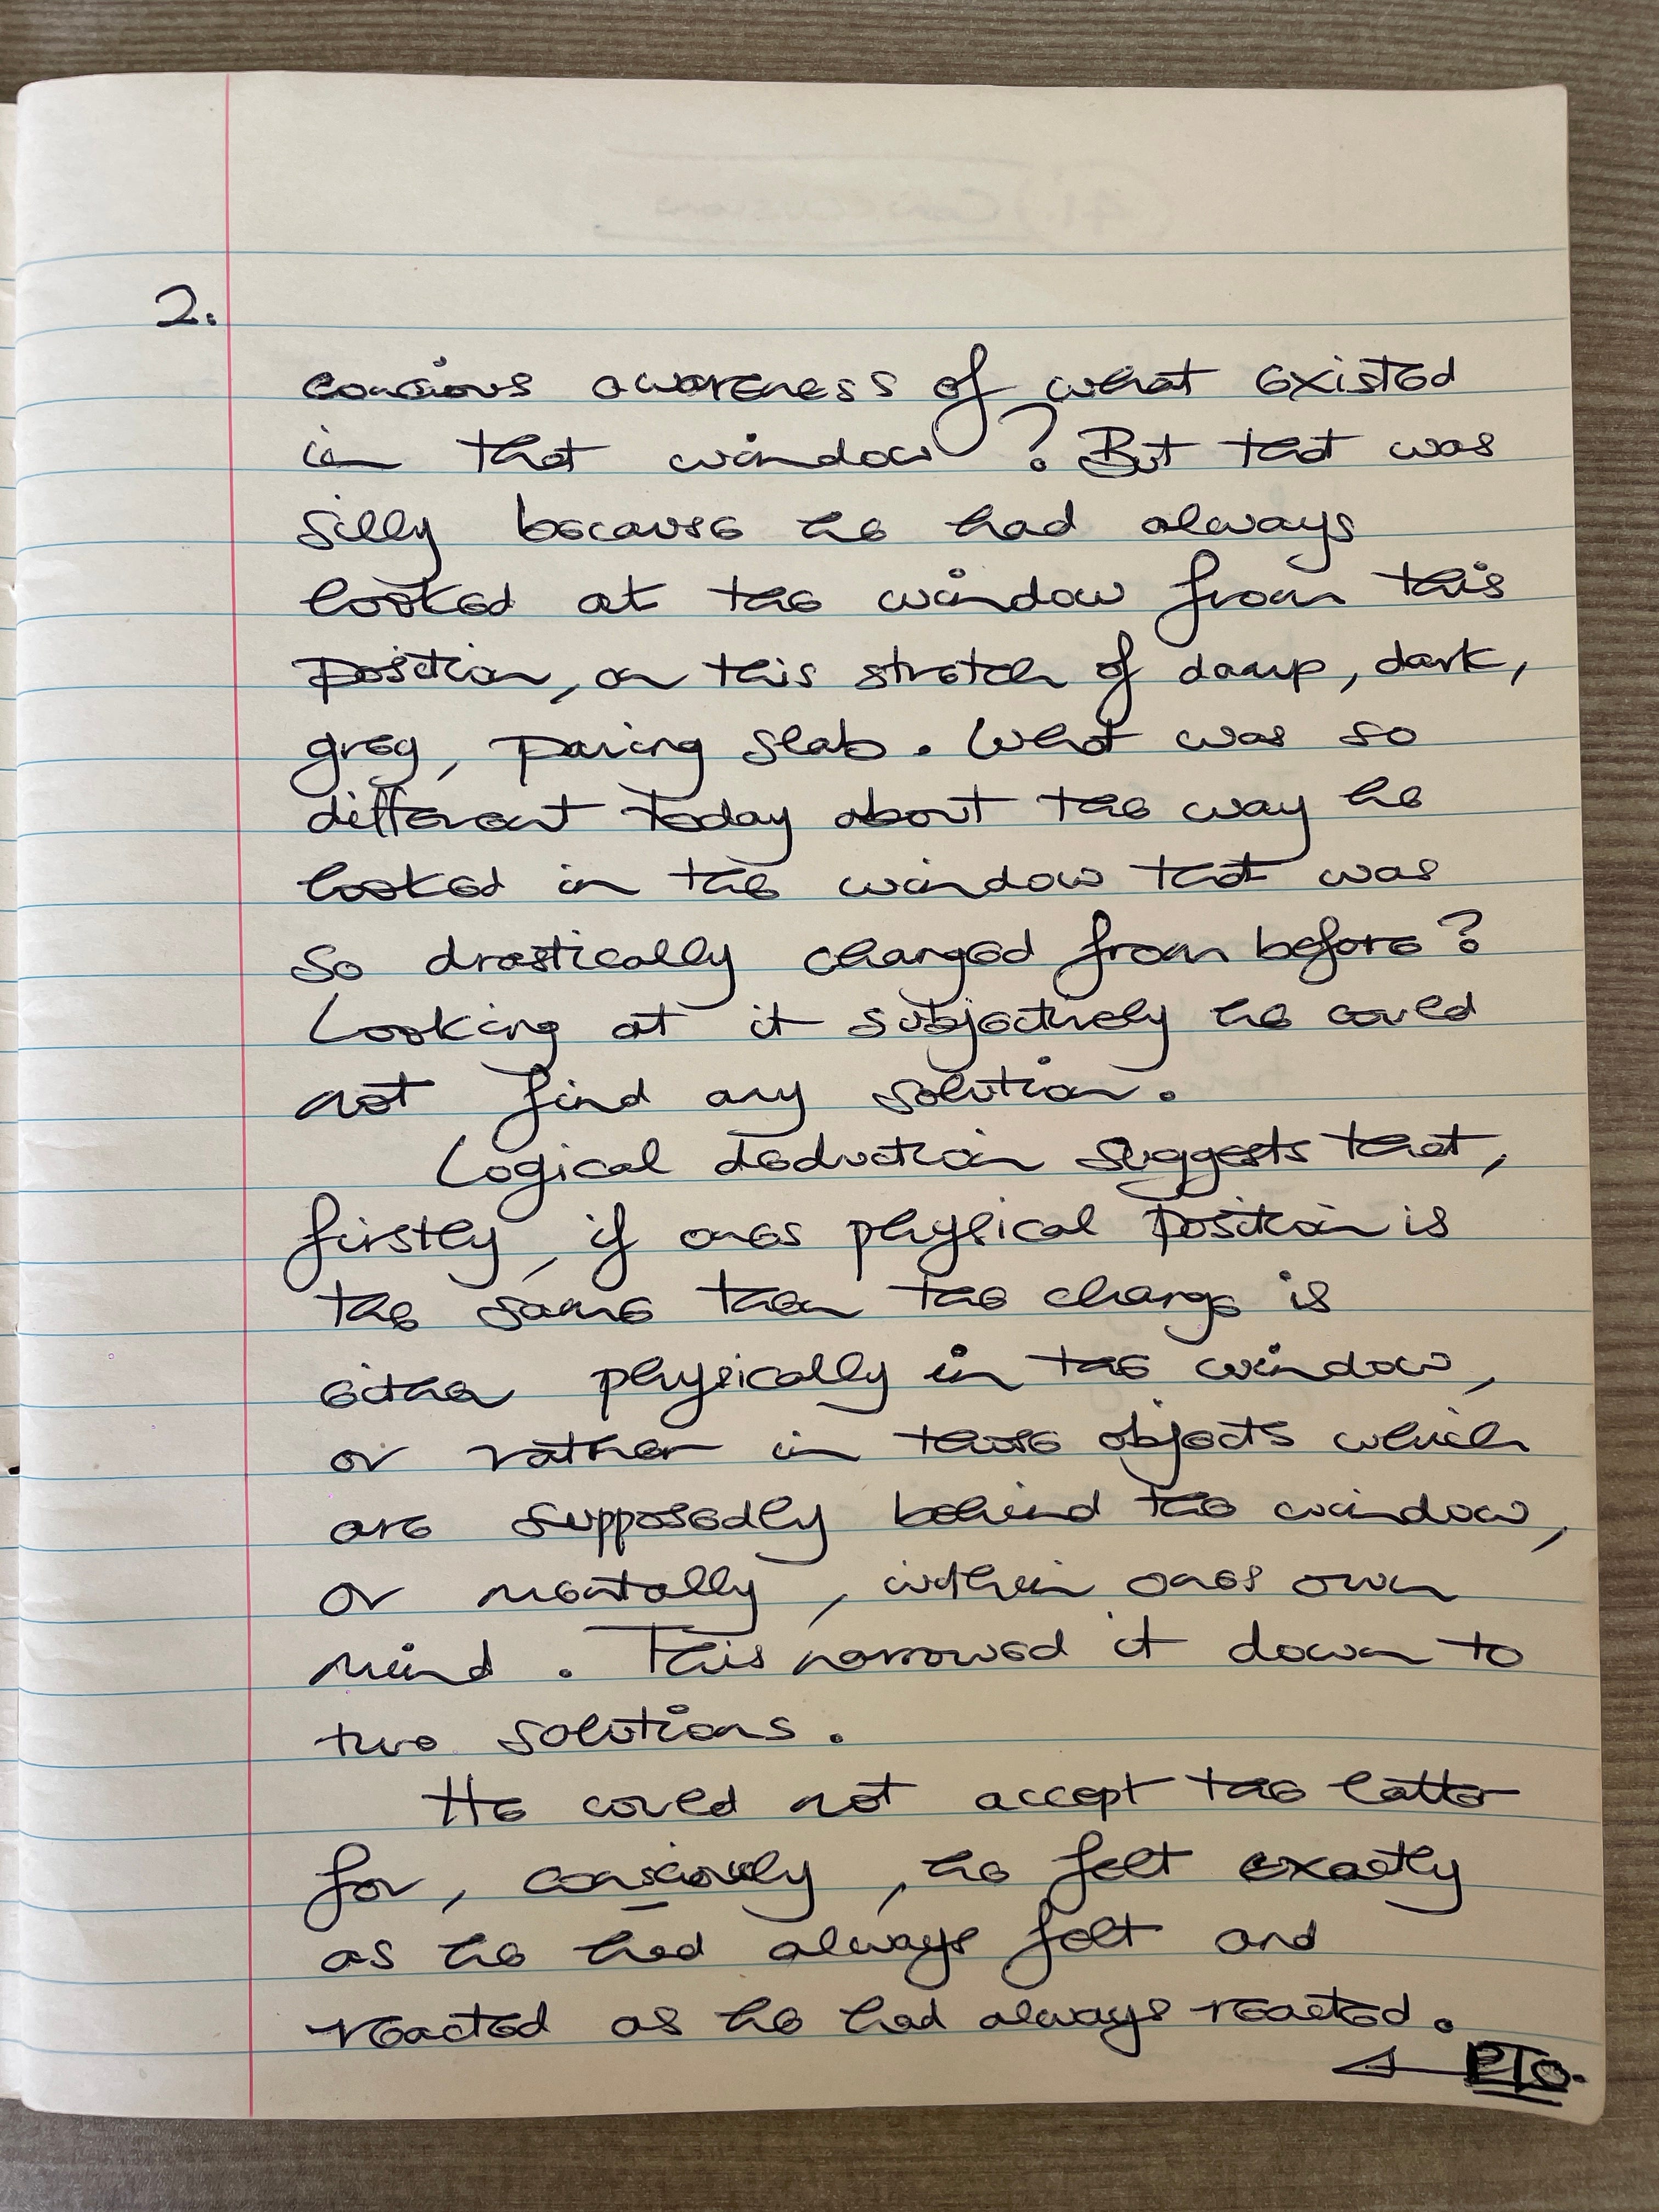 2.
concious awareness of what existed
in that window? But that was
silly because he had always
looked at the window from this
position, on this stretch of damp, dark,
grey, paving slab. What was so
different today about the way he
looked in the window that was
so drastically changed from before?
Looking at it subjectively he could
not find any solution.
Logical deduction suggests that,
firstly, if ones physical position is
the same then the change is
either physically in the window,
or rather in those objects which
are supposedly behind the window,
or mentally, within ones own
mind. This narrowed it down to
two solutions.
He could not accept the latter
for, consciously, he felt exactly
as he had always felt and
reacted as he had always reacted.
PTO.